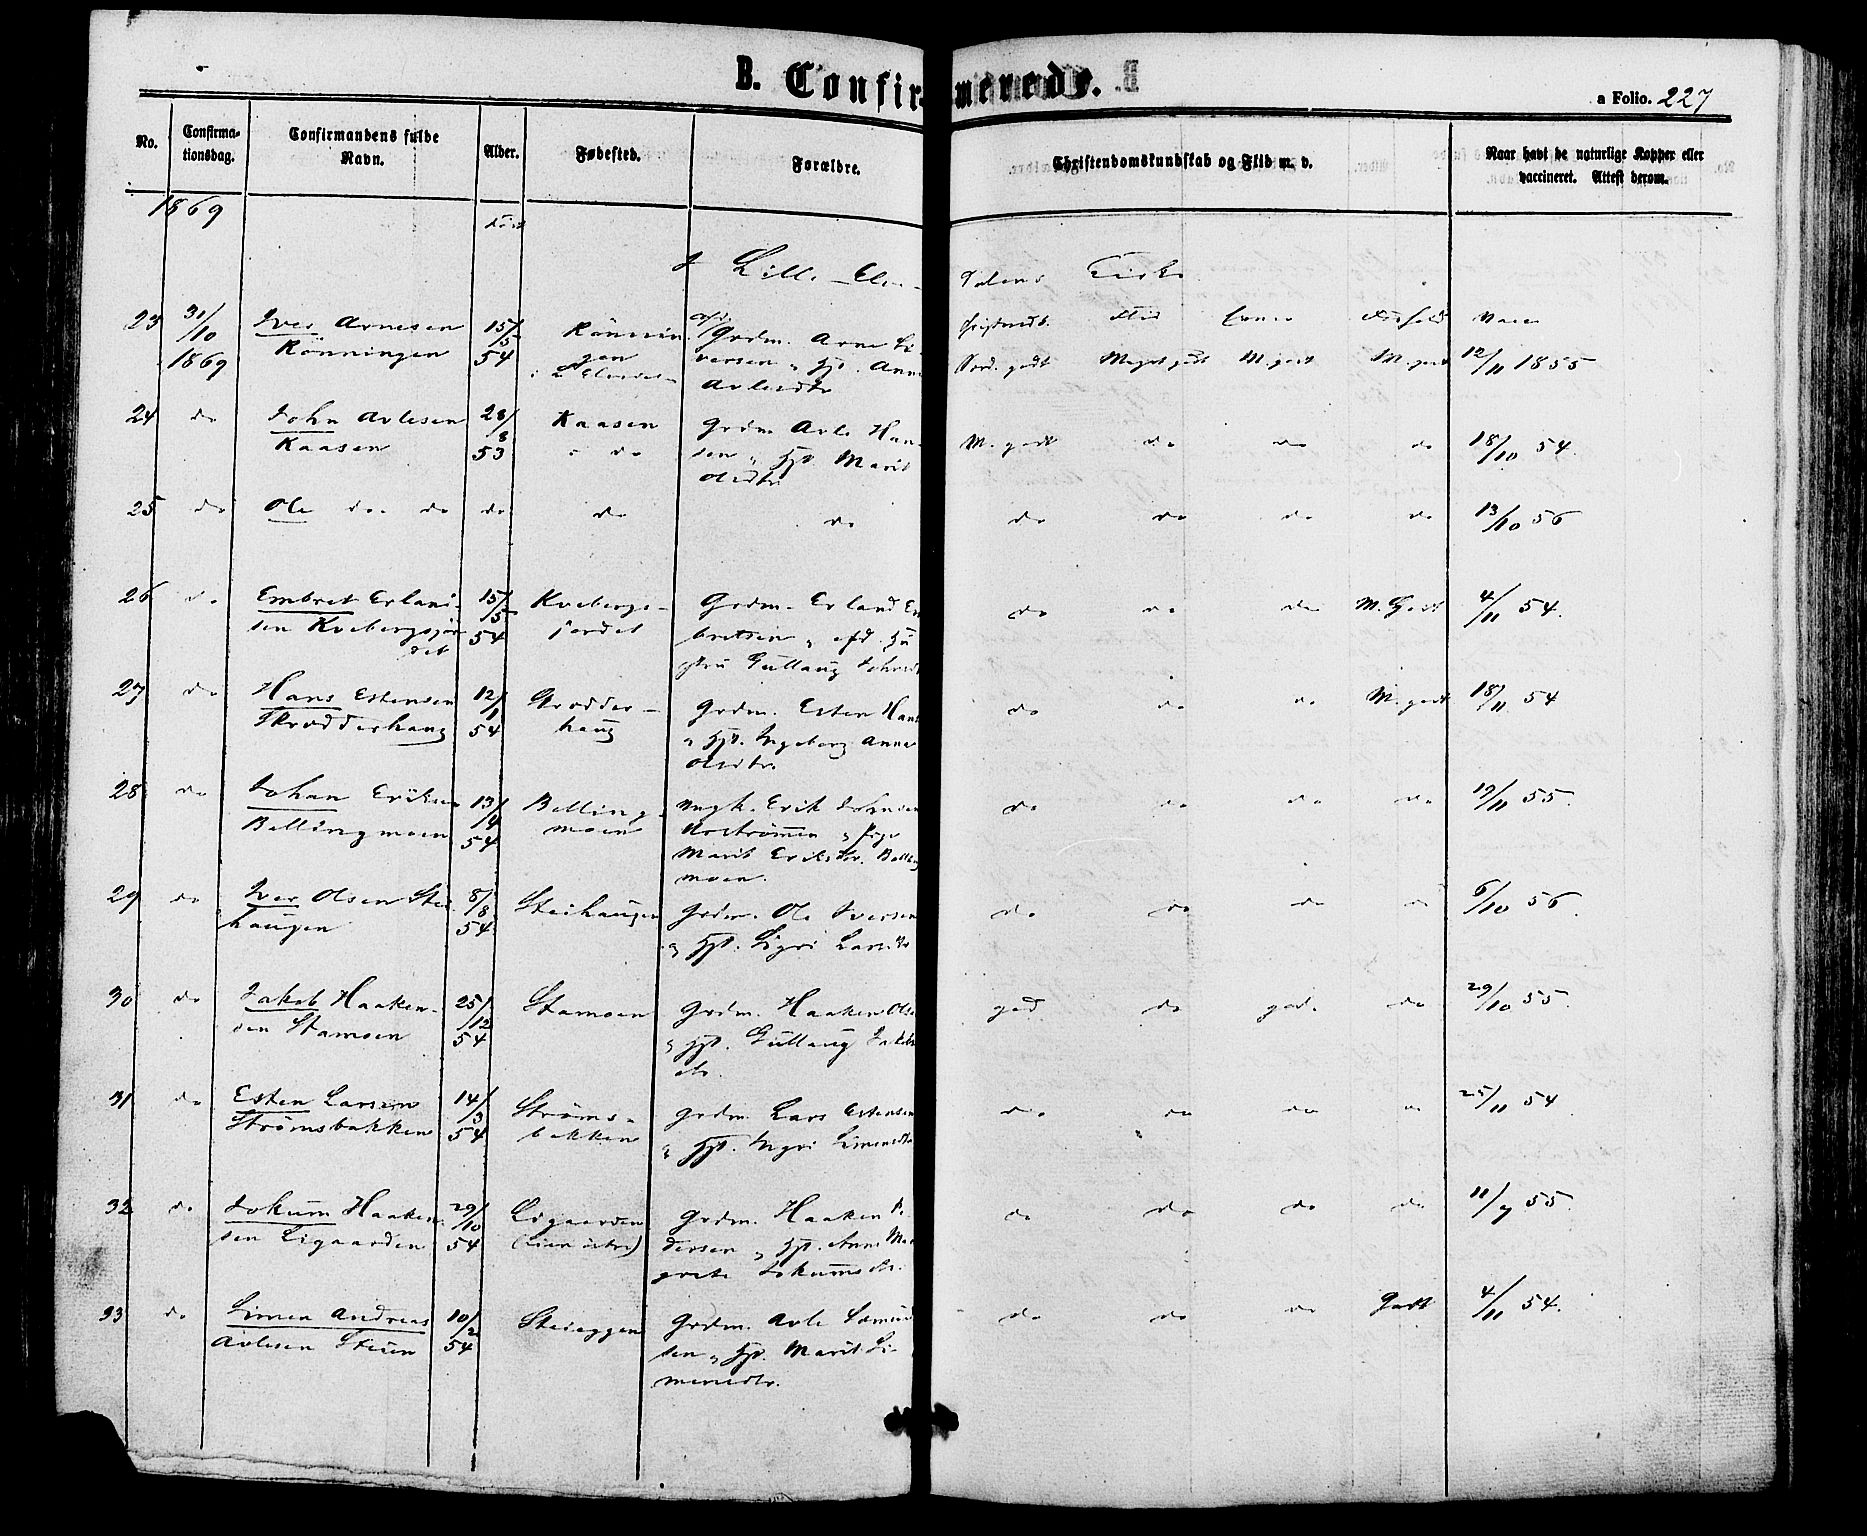 B. Confirmerede.
a Folio. 227
No.
Confirma-
tionsdag.
Confirmandens fulde
Navn.
Alder.
Fødested.
Forældre.
Christendomskundskab og Flid m. v.
Naar havt de naturlige Kopper eller
vaccineret. Attest derom.
1869
Kirke
23 31/10 1869
Iver Arnesen
Rönningen
15/5 54
Grdm. Arne
M. godt
12/11 1855
24 do
John Avlesen
Kaasen
28/8 53
Kaasen
do
Grdm. Avle Han-
sen, Hst. Marit
Olsdtr.
M. godt do do do
18/10 54.
25 do
Ole do do
do
do
do
do do do do
13/10 56
26 do
Embret Erland-
sen Kvebergsjor
det
15/5 54
Kvebergs-
jordet
Grdm. Erland Em
bretsen, afd. Hu
stru Gullaug Johnsdt
do do do M. Godt
4/11 54.
27 do
Hans Estensen
Skrodderhaug
12/1 54
Skrodder-
haug
Grdm. Esten Hans
Ingeborg Anna
Olsdtr.
do do do M. godt
18/11 54
28 do
Johan Eriksen
Bellingmoen
13/4 54
Belling-
moen
Ungk. Erik Johnsen
Pige
Marit Eriksdtr. Belling
moen.
do do do do
19/11 55.
29 do
Iver Olsen Stei
haugen
8/8 54
Steihaugen
Grdm. Ole Iversen
Hst. Sigri Larsdtr
do do do do
6/10 56.
30 do
Jakob Haaken-
sen Stamoen
25/12 54
Stamoen
Grdm. Haaken Ols
Hst. Gullaug Jakobs
dtr.
god do god. do
29/10 55.
31 do
Esten Larsen
Strømsbakken
14/3 54
Strøms-
bakken
Grdm. Lars Estensen
Hst. Ingri Simensdtr
do do do do
25/11 54
32 do
Jokum Haaken-
sen Ligaarden
29/10 54
Ligaarden
Grdm. Haaken Pe
dersen, Hst. Anne Mar
grete Jokumsdtr.
do do do do
11/7 55.
33 do
Simen Andreas
Avlesen Steien
10/2 54
Steieggen
Grdm. Avle Semund
sen, Hst. Marit Si-
mensdtr.
do do do Godt
4/11 54.